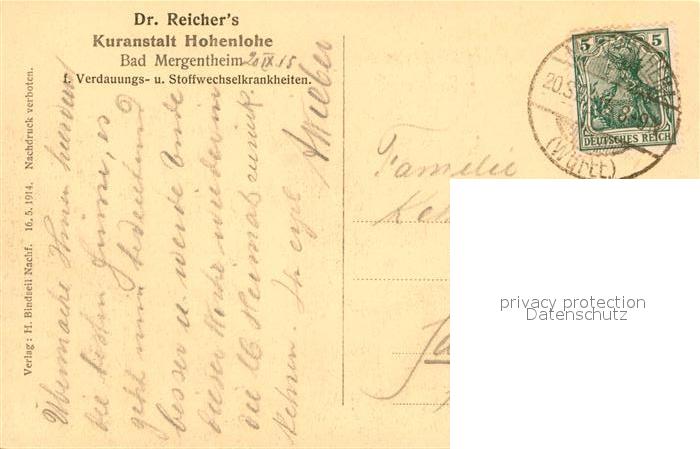 Dr. Reicher's
Kuranstalt Hohenlohe
Bad Mergentheim 20 IX 15
f. Verdauungs- u. Stoffwechselkrankheiten.
Verlag: H. Bindseil Nachf. 16. 5. 1914. Nachdruck verboten.
Übermache Ihnen hierdurch
die besten Grüsse, es
geht mir bedeutend
besser u. werde Ende
dieser Woche wieder in
die lb Heimat zurück
kehren. Ihr
5 5
DEUTSCHES REICH
20.SEP
8-9
(WÜRTT)
Familie
privacy protection
Datenschutz